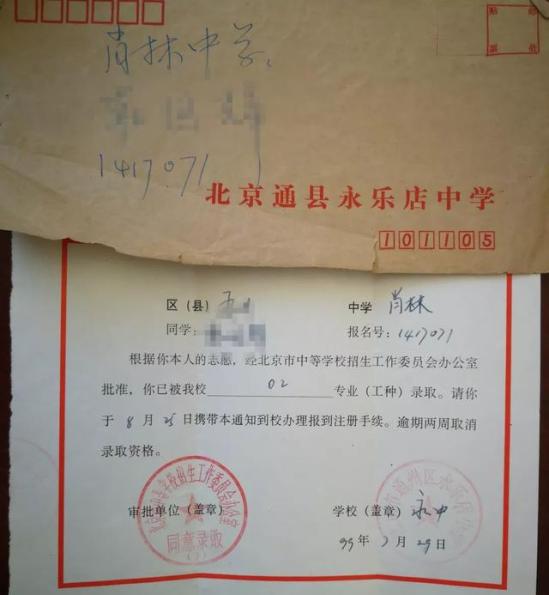 贴邮
票处
肖林中学
1417071
北京通县永乐店中学
101105
区（县） 中学 肖林
同学： 报名号：1417071
根据你本人的志愿，经北京市中等学校招生工作委员会办公室
批准，你已被我校 02 专业（工种）录取。请你
于 8 月 25 日携带本通知到校办理报到注册手续。逾期两周取消
录取资格。
北京市中等学校招生工作委员会办公室
同意录取
审批单位（盖章） 学校（盖章） 永中
99 年 7 月 29 日